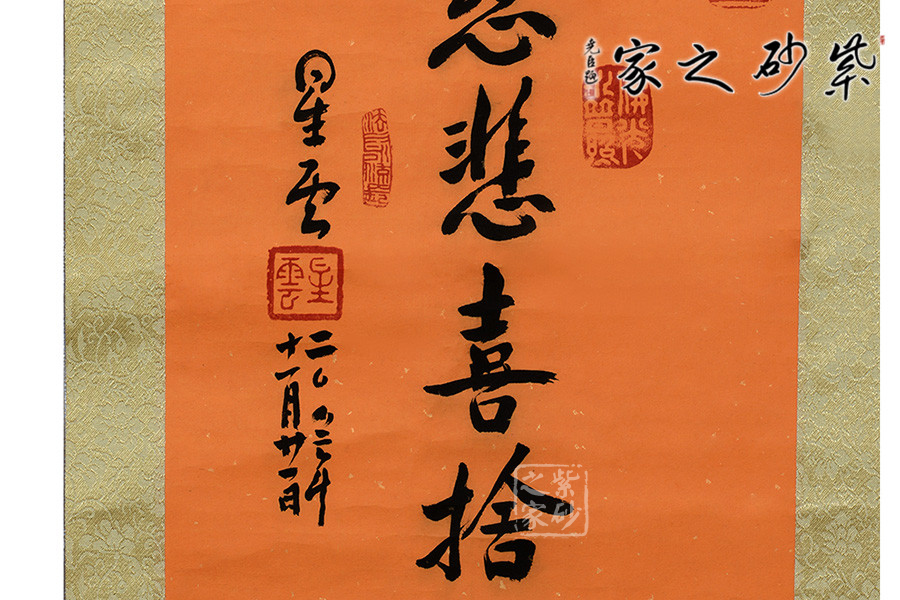 紫砂之家
慈悲喜捨
星雲
星雲
二〇〇三年
十一月廿一日
紫砂之家